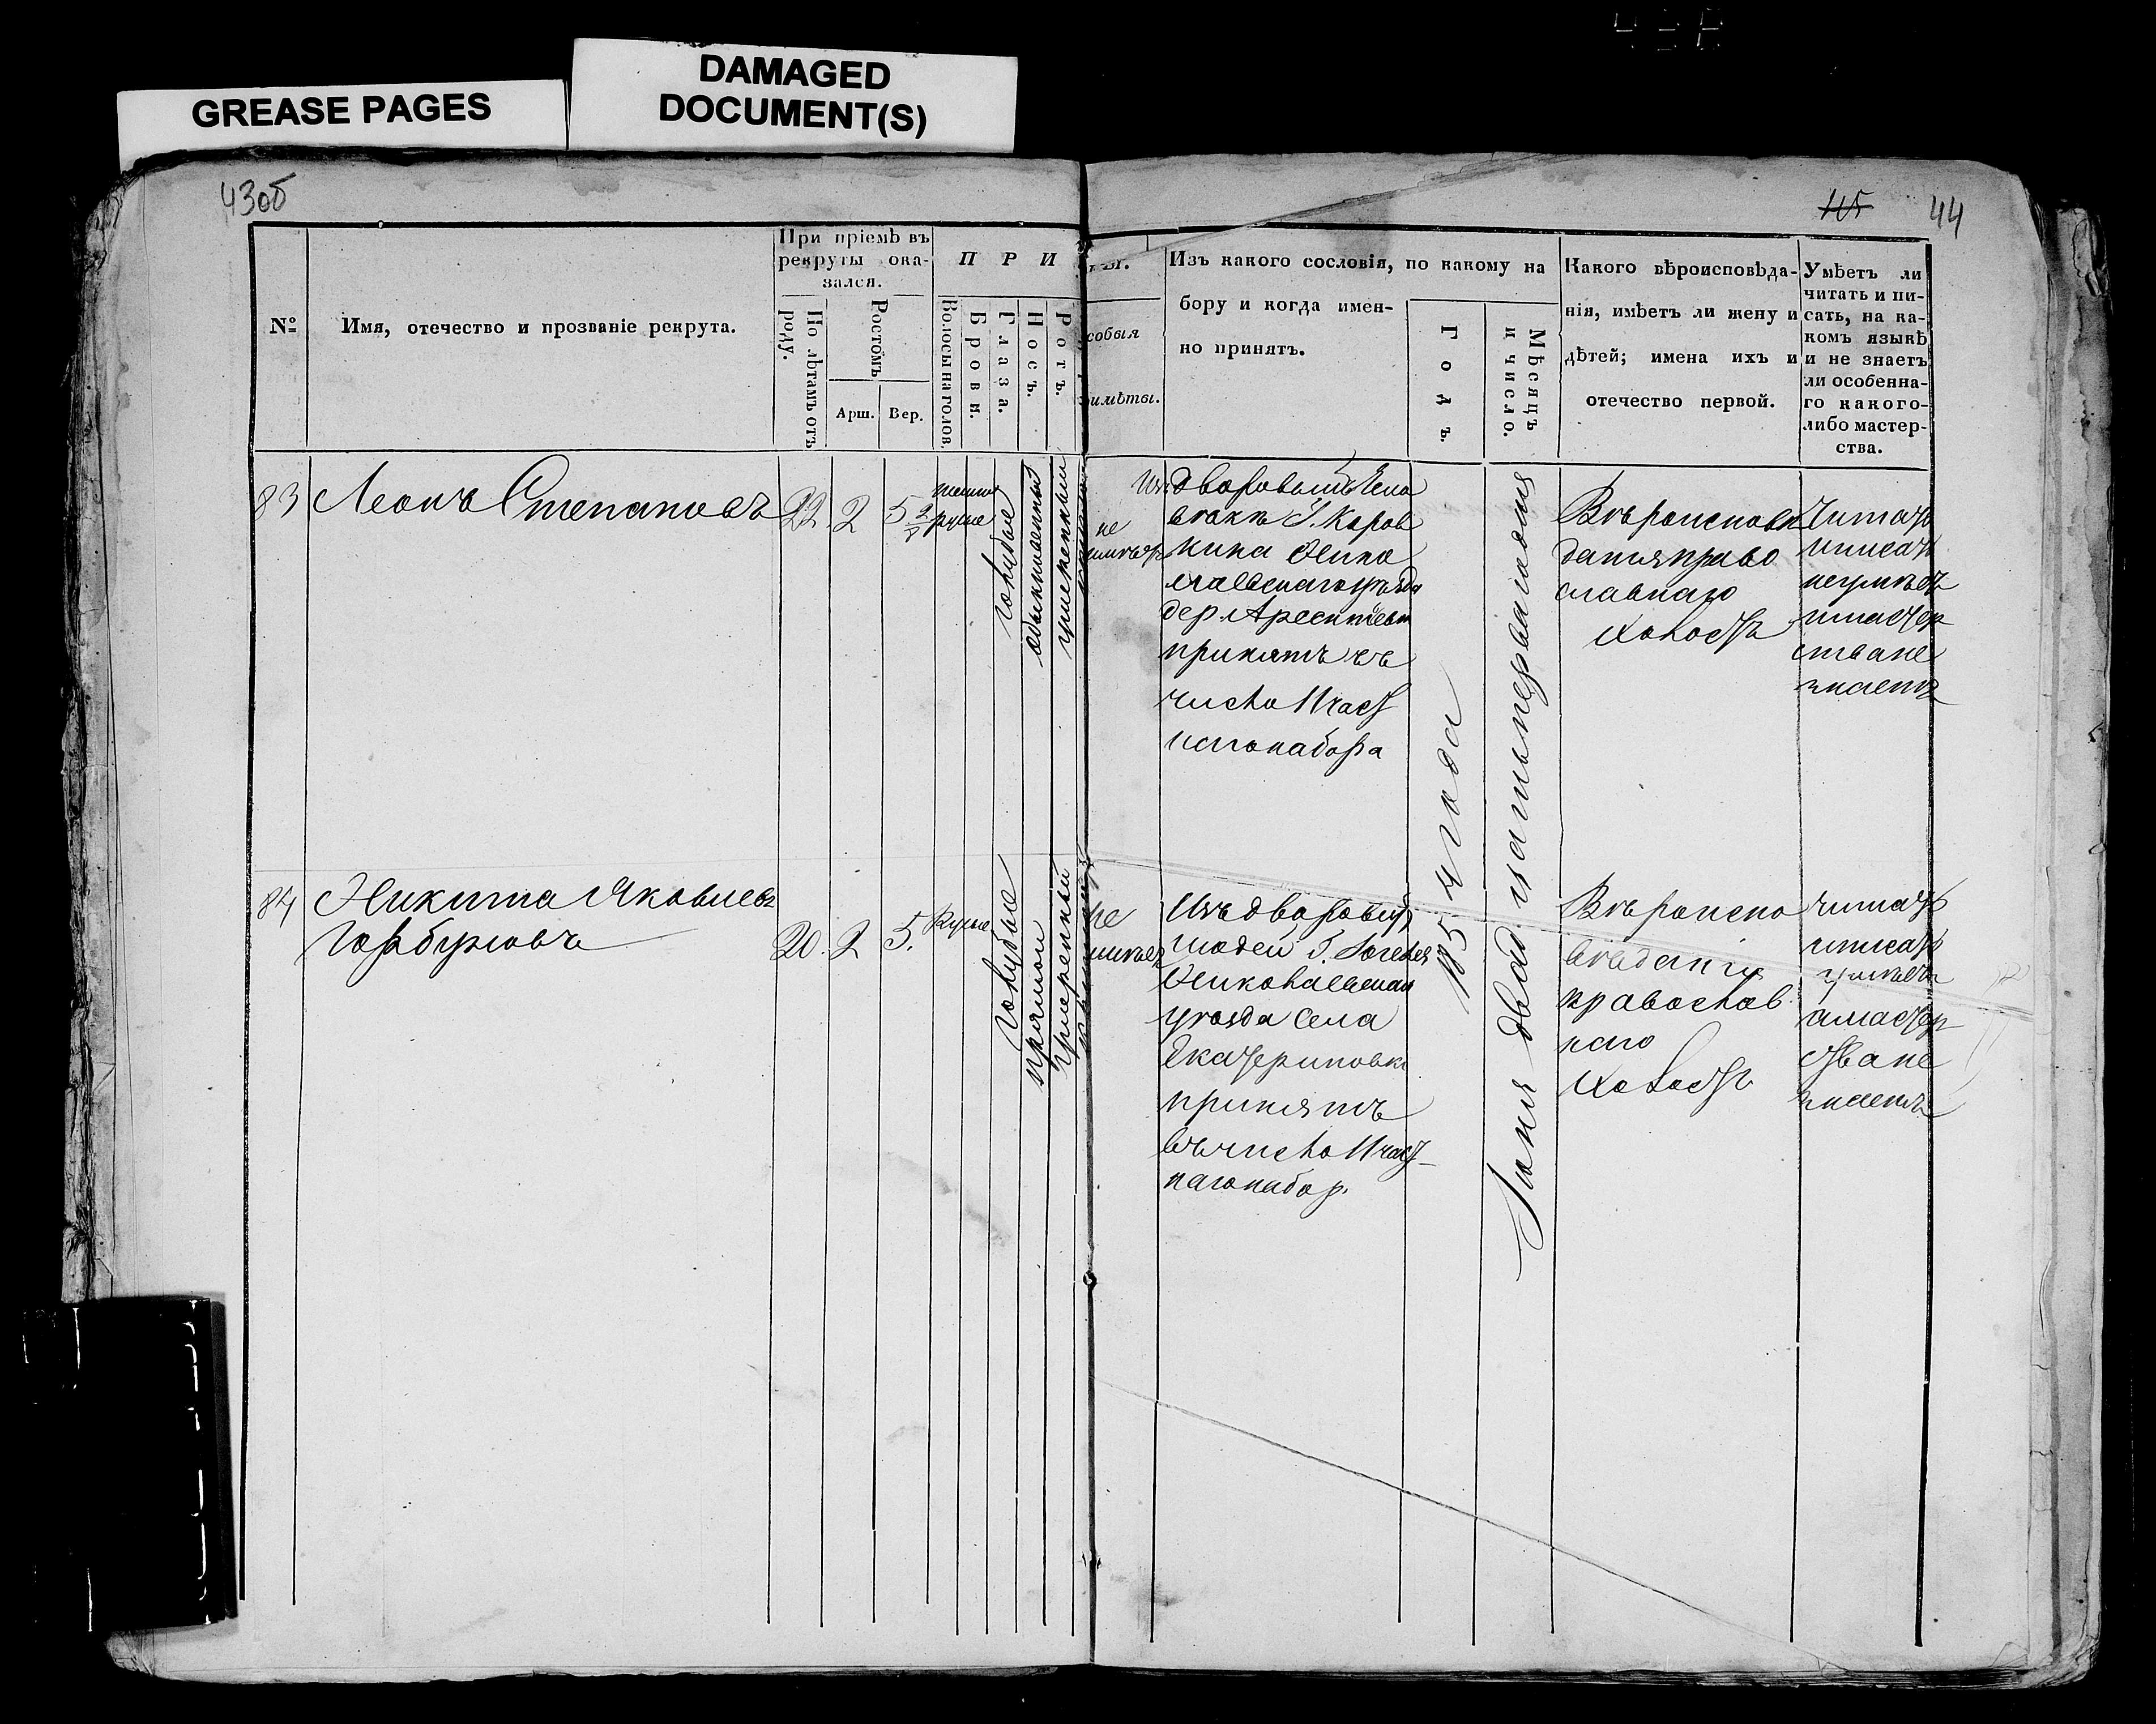 GREASE PAGES
DAMAGED
DOCUMENT(S)
43об
44
№
Имя, отечество и прозваніе рекрута.
При пріемѣ въ
рекруты ока-
зался.
По лѣтамъ отъ
роду.
Ростомъ
Арш.
Вер.
П Р И
Волосы на головѣ.
Брови.
Глаза.
Носъ.
Ротъ.
собыя
имѣты.
Изъ какого сословія, по какому на
бору и когда имен-
но принятъ.
Годъ.
Мѣсяцъ
и число.
Какого вѣроисповѣда-
нія, имѣетъ ли жену и
дѣтей; имена ихъ и
отечество первой.
Умѣетъ ли
читать и пи-
сать, на ка-
комъ языкѣ
и не знаетъ
ли особенна-
го какого-
либо мастер-
ства.
83
Леонъ Степановъ
22
2
5
темно
русые
голубые
обыкновенный
умеренный
не
имѣетъ
Изъ дворовыхъ
Г. Коров
кина Нико
лаевскаго уѣзда
дер.
принятъ въ
число Ичаст
наго набора
1854 года
Іюня двадцать перваго дня
Вѣроисповѣ
данія право
славнаго
холостъ
Читать
иписать
неумѣетъ
имастер
стване
знаетъ
84
Никита Яковлевъ
Горбуновъ
20.
2
5.
Русые
голубые
прямой
умеренный
не
имѣетъ
Изъ дворовыхъ
людей Г.
Николаевскаго
уѣзда села
Екатериновки
принятъ
въ число Ичаст-
наго набор.
Вѣроиспо
вѣданія
православ
наго
холостъ
читать
иписать
умѣетъ
амастер
стване
знаетъ